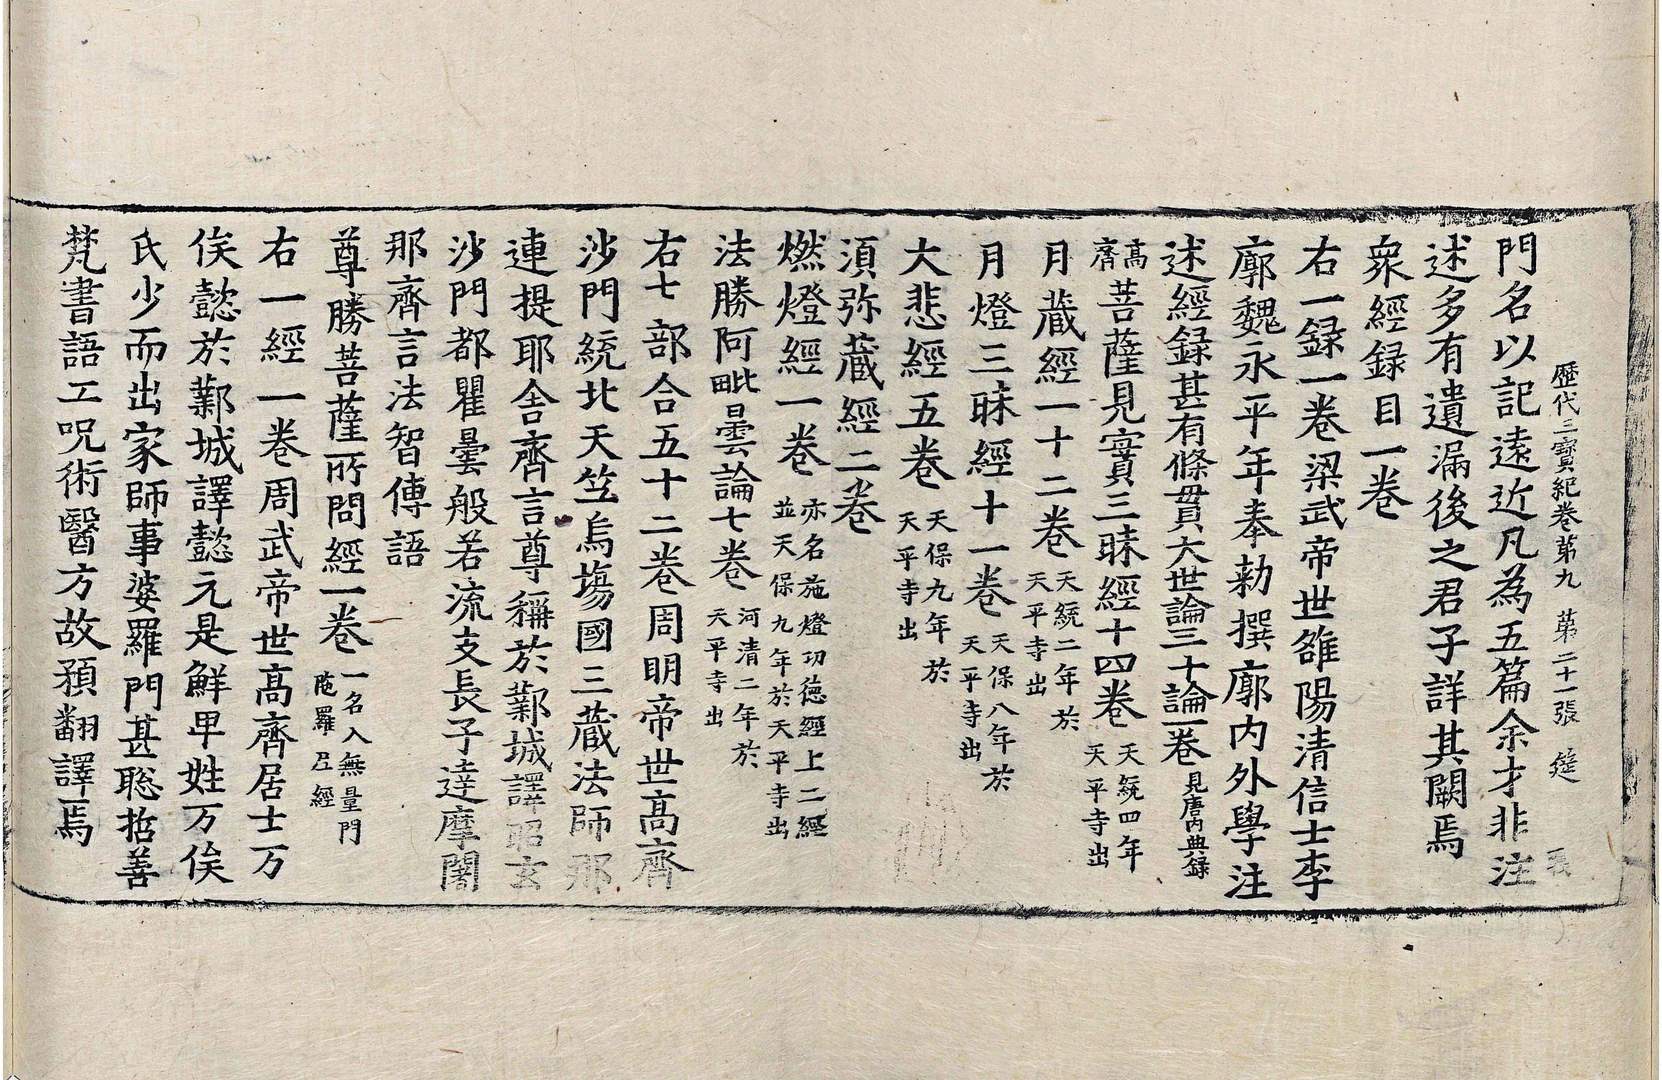 歷代三寶紀卷第九 第二十一張 筵
門名以記遠近凡為五篇余才非注
述多有遺漏後之君子詳其闕焉
衆經録目一卷
右一録一卷梁武帝世雒陽清信士李
廓魏永平年奉勑撰廓内外學注
述經録甚有條貫大世論三十論一卷 見唐内典録
高齊 菩薩見實三昧經十四卷 天統四年天平寺出
月蔵經一十二卷 天統二年於天平寺出
月燈三昧經十一卷 天保八年於天平寺出
大悲經五卷 天保九年於天平寺出
須弥蔵經二卷
燃燈經一卷 亦名施燈功德經上二經並天保九年於天平寺出
法勝阿毗曇論七卷 河清二年於天平寺出
右七部合五十二卷周明帝世高齊
沙門統北天竺烏塲國三蔵法師那
連提耶舍齊言尊稱於鄴城譯昭玄
沙門都瞿曇般若流支長子達摩闍
那齊言法智傳語
尊勝菩薩所問經一卷 一名入無量門陁羅尼經
右一經一卷周武帝世高齊居士万
俟懿於鄴城譯懿元是鮮卑姓万俟
氏少而出家師事婆羅門甚聡哲善
梵書語工呪術醫方故預翻譯焉